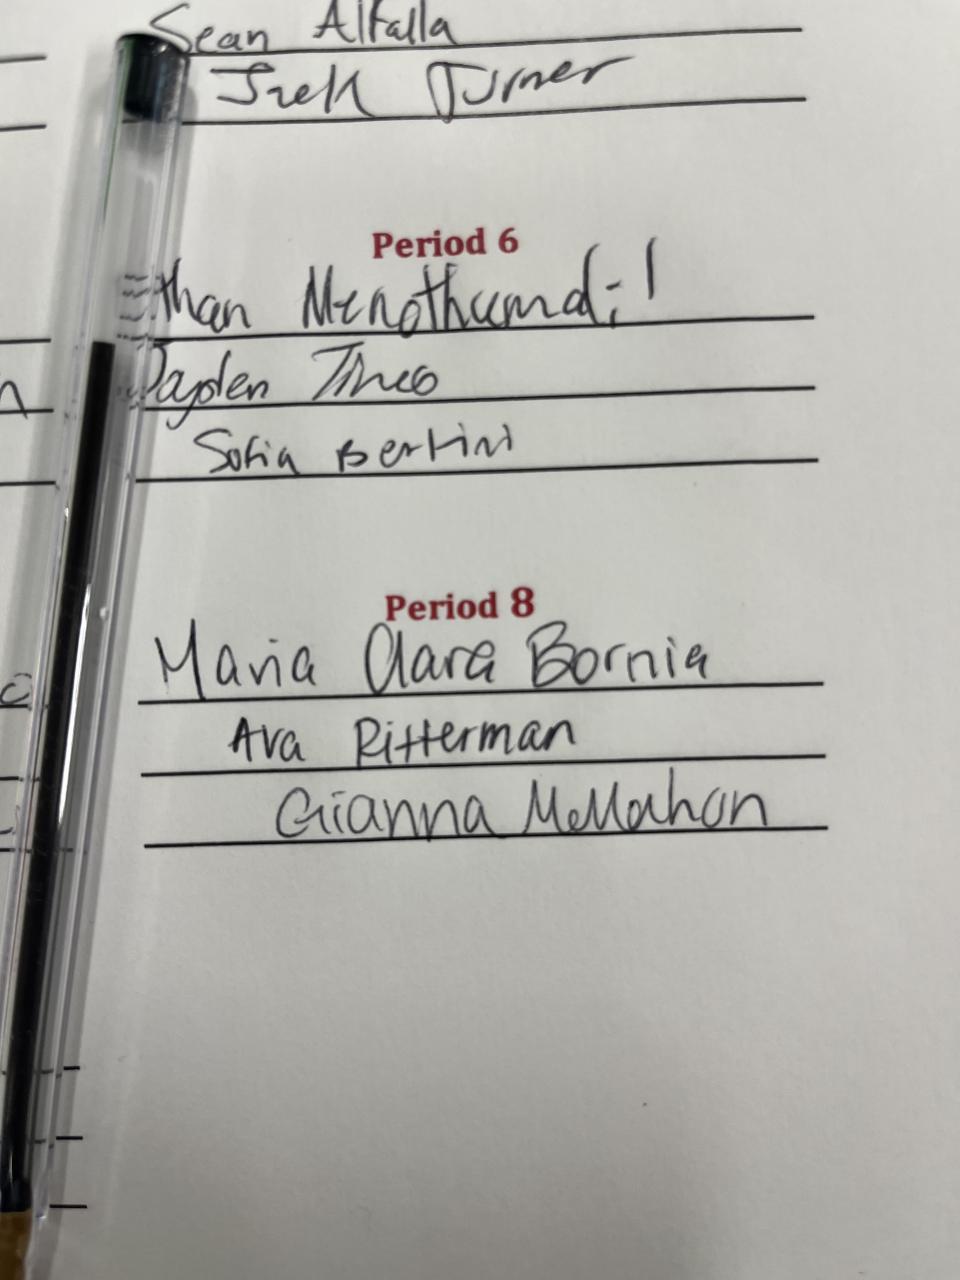 Sean Alfalla
Turner
Period 6
Ethan Menothumdil
Jayden Tineo
Sofia Bertini
Period 8
Maria Clara Bornia
Ava Ritterman
Gianna McMahon